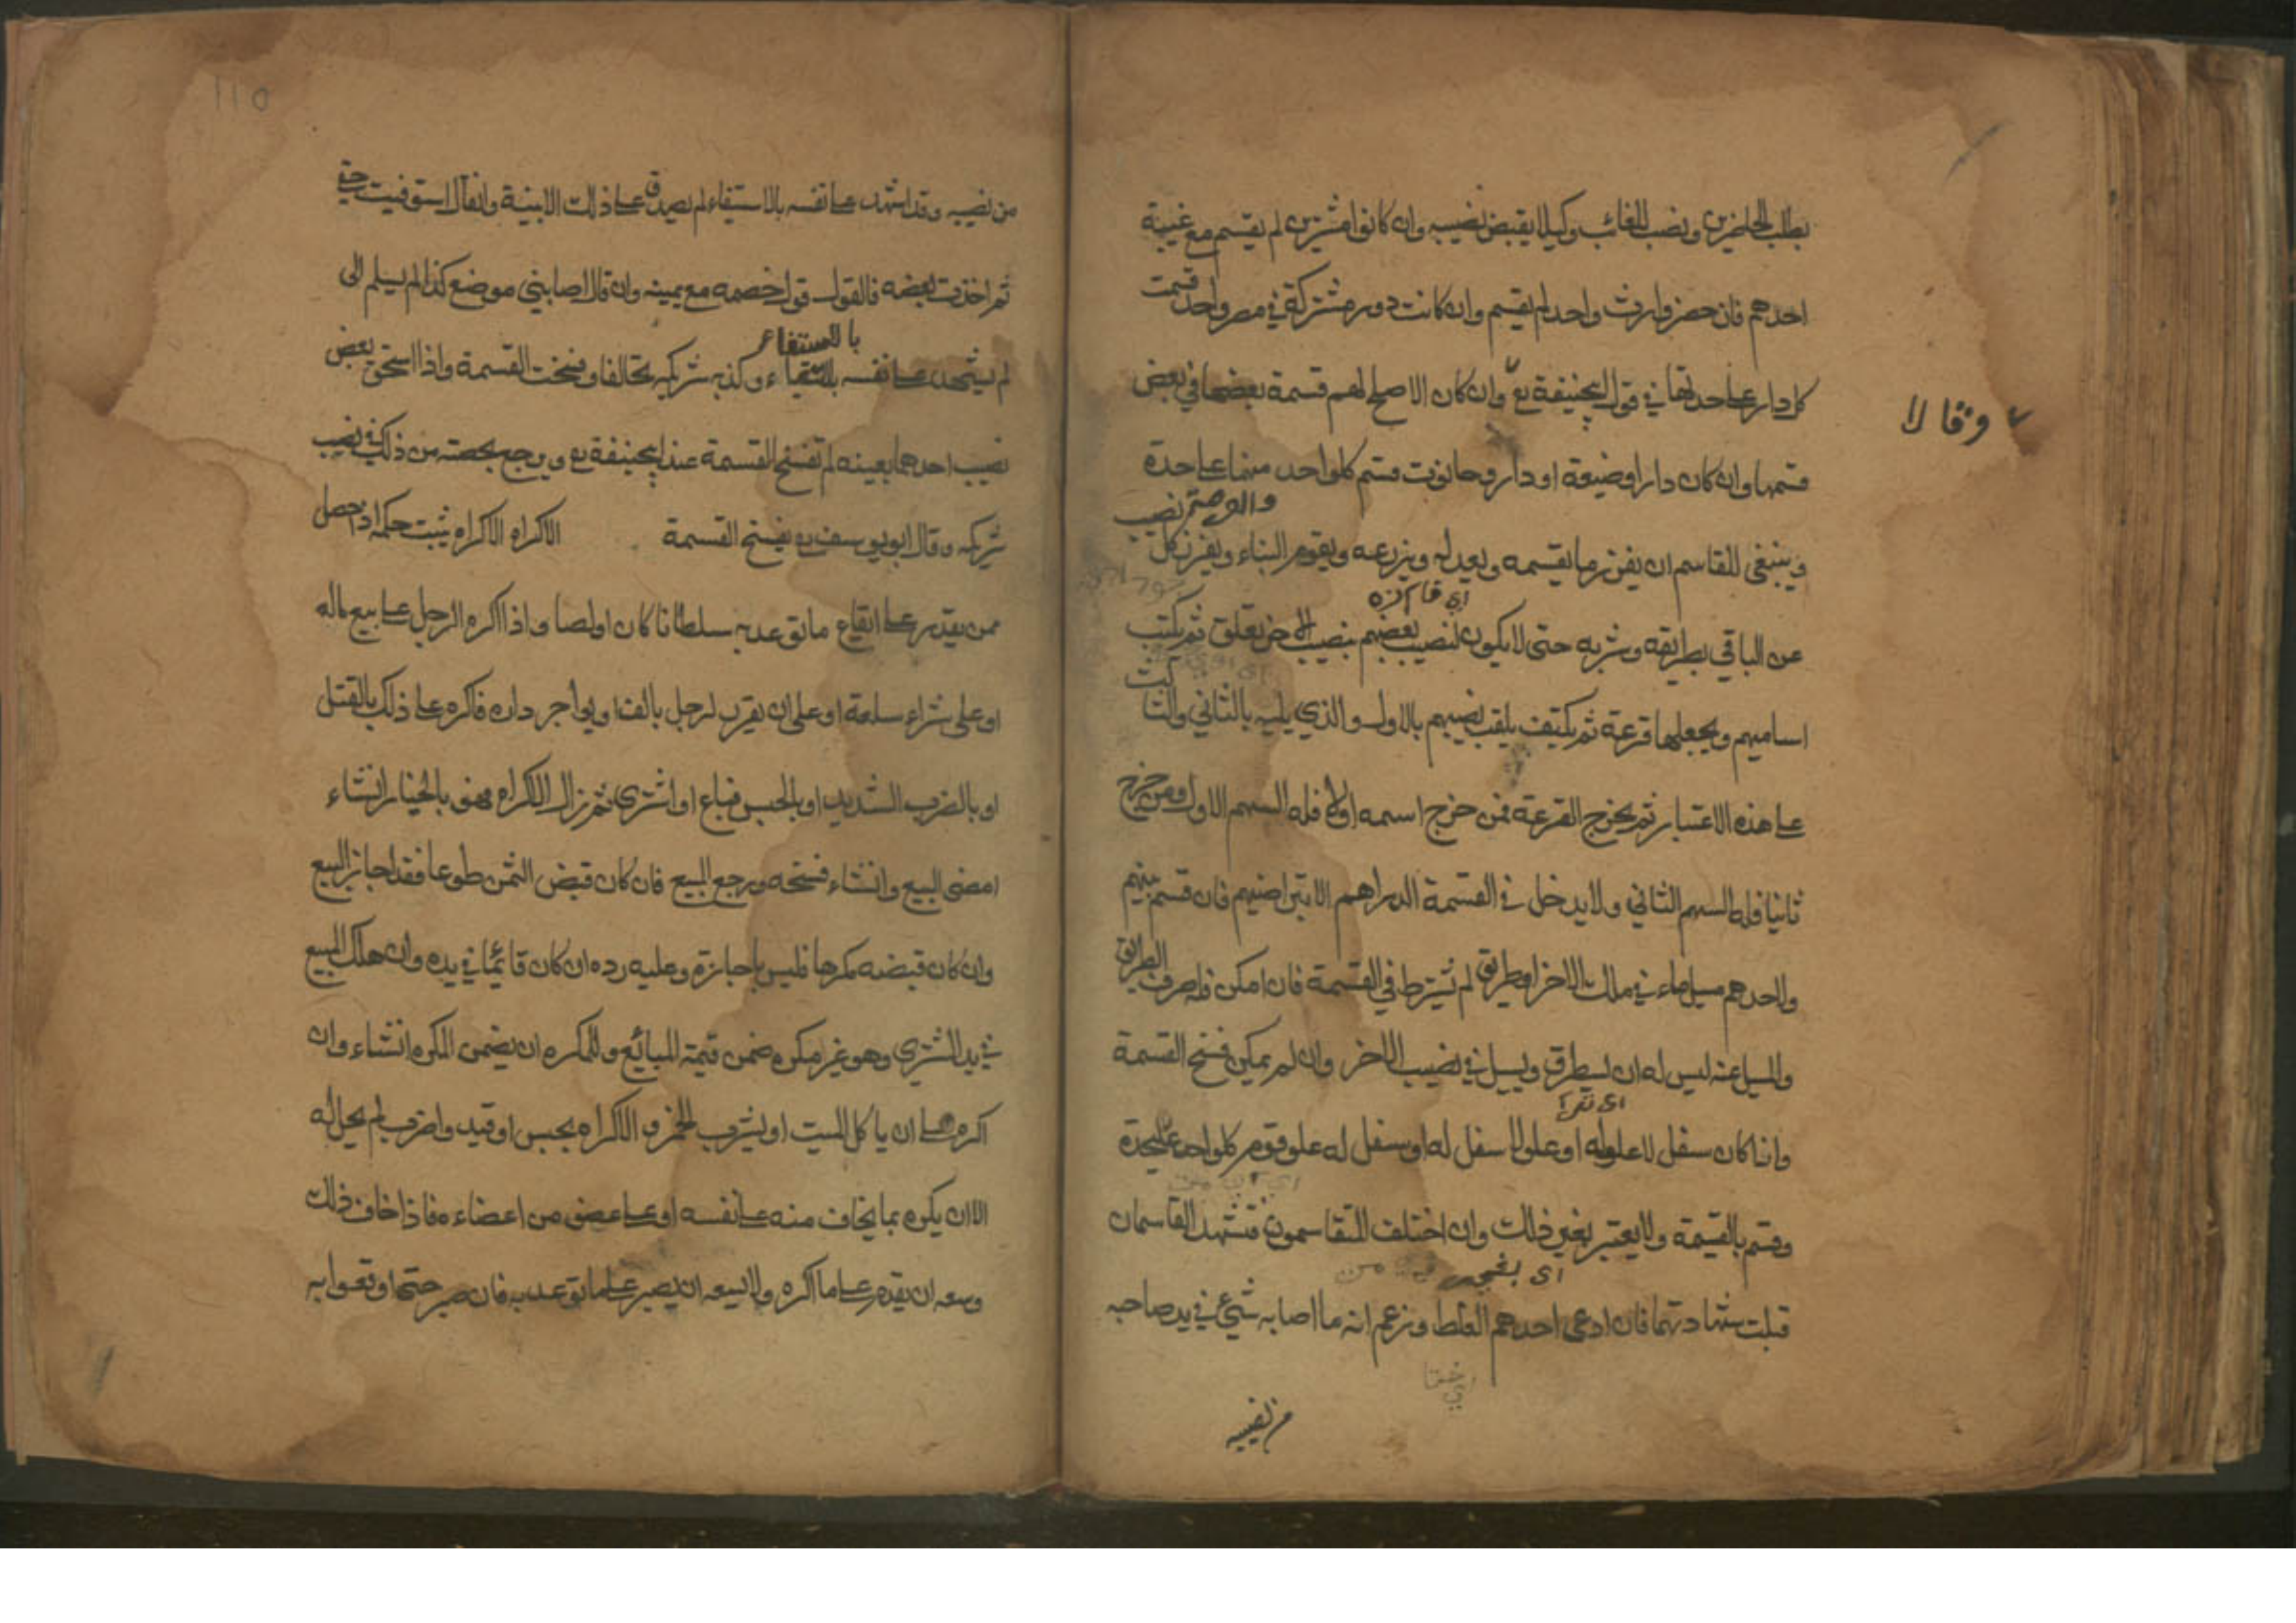 بطلب الحاضرين ونصب للغائب وكيلا يقبض نصيبه وان كانوا مشترين لم يقسم مع غيبة
احدهم فان حضر وارث واحد لم يقسم وان كانت دور مشتركة في مصر واحد قسمت
كل دار على حدتها في قول ابيحنيفة رح وان كان الاصلح لهم قسمة بعضها في بعض
وقالا
قسمها وان كان دار او ضيعة او دار وحانوت قسم كل واحد منها على حدة
وينبغي للقاسم ان يفرز ما يقسمه ويعدله ويزرعه ويقوم البناء ويفرز كل
نصيب
عن الباقي بطريقه وشربه حتى لا يكون لنصيب بعضهم بنصيب الاخر تعلق ثم يكتب
اساميهم ويجعلها قرعة ثم يلقب نصيبهم بالاول والذي يليه بالثاني والثالث
على هذه الاعتبار ثم يخرج القرعة فمن خرج اسمه اولا فله السهم الاول ومن خرج
ثانيا فله السهم الثاني ولا يدخل في القسمة الدراهم الا بتراضيهم فان قسم بينهم
ولاحدهم مسيل ماء في ملك الاخر او طريق لم تشترط في القسمة فان امكن فله صرف الطريق
والمسيل عنه ليس له ان يستطرق ويسيل في نصيب الاخر وان لم يمكن فسخ القسمة
واذا كان سفل لا علو له او علو لا سفل له او سفل له علو قوم كل واحد على حدة
وقسم بالقيمة ولا يعتبر بغير ذلك وان اختلف المتقاسمون فشهد القاسمان
قبلت شهادتهما فان ادعى احدهم الغلط وزعم انه مما اصابه شيئ في يد صاحبه
من نصيبه
١١٥
من نصيبه وقد اشهد على نفسه بالاستيفاء لم يصدق على ذلك الا ببينة وان قال استوفيت حقي
ثم اخذت بعضه فالقول قول خصمه مع يمينه وان قال اصابني موضع كذا لم يسلم الى
بالاستيفاء
لم يشهد على نفسه وكذبه شريكه تحالفا وفسخت القسمة واذا استحق بعض
نصيب احدهما بعينه لم تفسخ القسمة عند ابيحنيفة رح ويرجع بحصته من ذلك في نصيب
شريكه وقال ابو يوسف رح يفسخ القسمة الاكراه الاكراه يثبت حكمه اذ احصل
ممن يقدر على ايقاع ما توعد به سلطانا كان او لصا واذا اكره الرجل على بيع ماله
او على شراء سلعة او على ان يقر لرجل بالف او يواجر داره فاكره على ذلك بالقتل
او بالضرب الشديد او بالحبس فباع او اشترى ثم زال الاكراه فهو بالخيار انشاء
امضى البيع وانشاء فسخه ورجع المبيع فان كان قبض الثمن طوعا فقد اجاز البيع
وان كان قبضه مكرها فليس باجازة وعليه رده ان كان قائما في يده وان هلك المبيع
في يد المشتري وهو غير مكره ضمن قيمة للبائع وللمكره ان يضمن المكره انشاء وان
اكره على ان ياكل الميت او يشرب الخمر والاكراه بحبس او قيد او ضرب لم يحل له
الا ان يكره بما يخاف منه على نفسه او على عضو من اعضاءه فاذا خاف ذلك
وسعه ان يقدم على ما اكره ولا يسعه ان يصبر على ما توعد به فان صبر حتى اوقعوا به